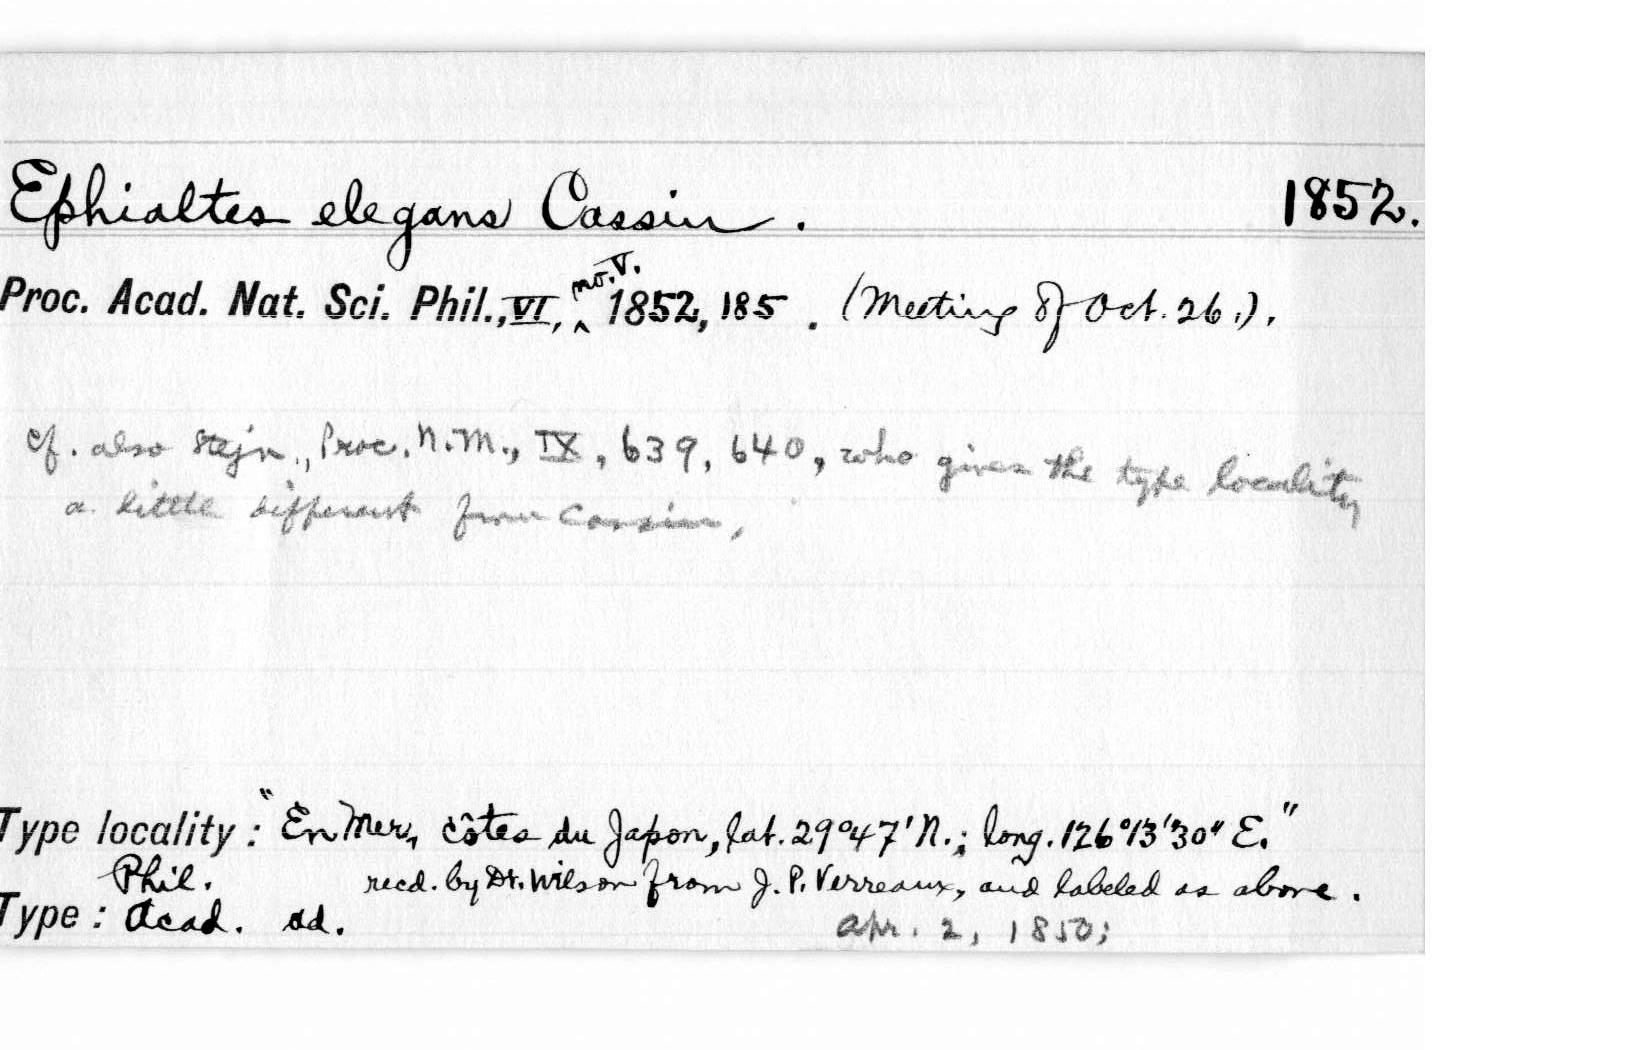 Ephialtes elegans Cassin. 1852.
Proc. Acad. Nat. Sci. Phil., VI, no. V. 1852, 185. (Meeting of Oct. 26.).
cf. also Stejn., Proc. N.M., IX, 639, 640, who gives the type locality
a little different from Cassin,
Type locality: "En Mer, côtes du Japon, lat. 29°47' N.; long. 126°13'30" E."
Phil. recd. by Dr. Wilson from J. P. Verreaux, and labeled as above.
Type: Acad. ad. Apr. 2, 1850;